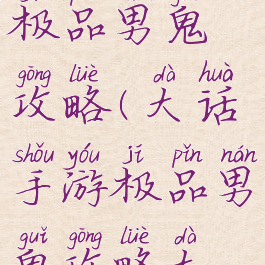 极品男鬼
gōng lüè dà huà
攻略(大话
shǒu yóu jí pǐn nán
手游极品男
guǐ gōng lüè dà
鬼攻略大